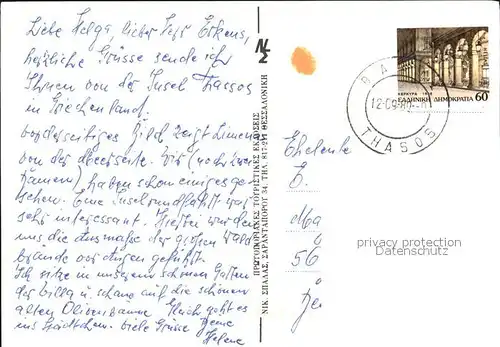 Liebe Helga, lieber Herr Erkens,
herzliche Grüsse sende ich
Ihnen von der Insel Thassos
in Griechenland.
vorderseitiges Bild zeigt Limenas
von der Meerseite. Wir (noch zwei
Damen) hatten schon einiges ge-
sehen. Eine Inselrundfahrt war
sehr interessant. Hierbei wurden
uns die Ausmaße der großen Wald
brände vor Augen geführt.
Ich sitze in unserem schönen Garten
der Villa u. schaue auf die schönen
alten Olivenbäume. Gleich geht es
ins Städtchen. Viele Grüsse
Helene
ΠΡΩΤΟΠΟΡΙΑΚΕΣ ΤΟΥΡΙΣΤΙΚΕΣ ΕΚΔΟΣΕΙΣ
ΝΙΚ. ΣΠΑΛΑΣ, ΣΑΡΑΝΤΑΠΟΡΟΥ 34, ΤΗΛ. 811-211 ΘΕΣΣΑΛΟΝΙΚΗ
ΚΕΡΚΥΡΑ
ΕΛΛΗΝΙΚΗ ΔΗΜΟΚΡΑΤΙΑ 60
THASOS
Eheleute
56
privacy protection
Datenschutz